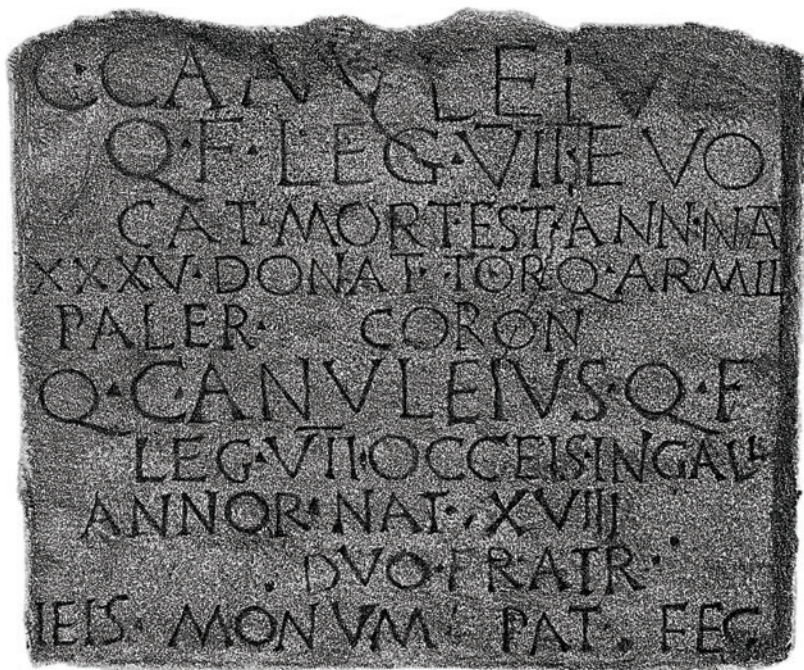 C·CANVLEIV
Q·F·LEG·VII·EVO
CAT·MORT·EST·ANN·NAT
XXXV·DONAT·TORQ·ARMIL
PALER· CORON
Q·CANVLEIVS·Q·F
LEG·VII·OCCEIS·IN GALL
ANNOR·NAT·XVIII
DVO·FRATR·
IEIS·MONVM· PAT· FEC